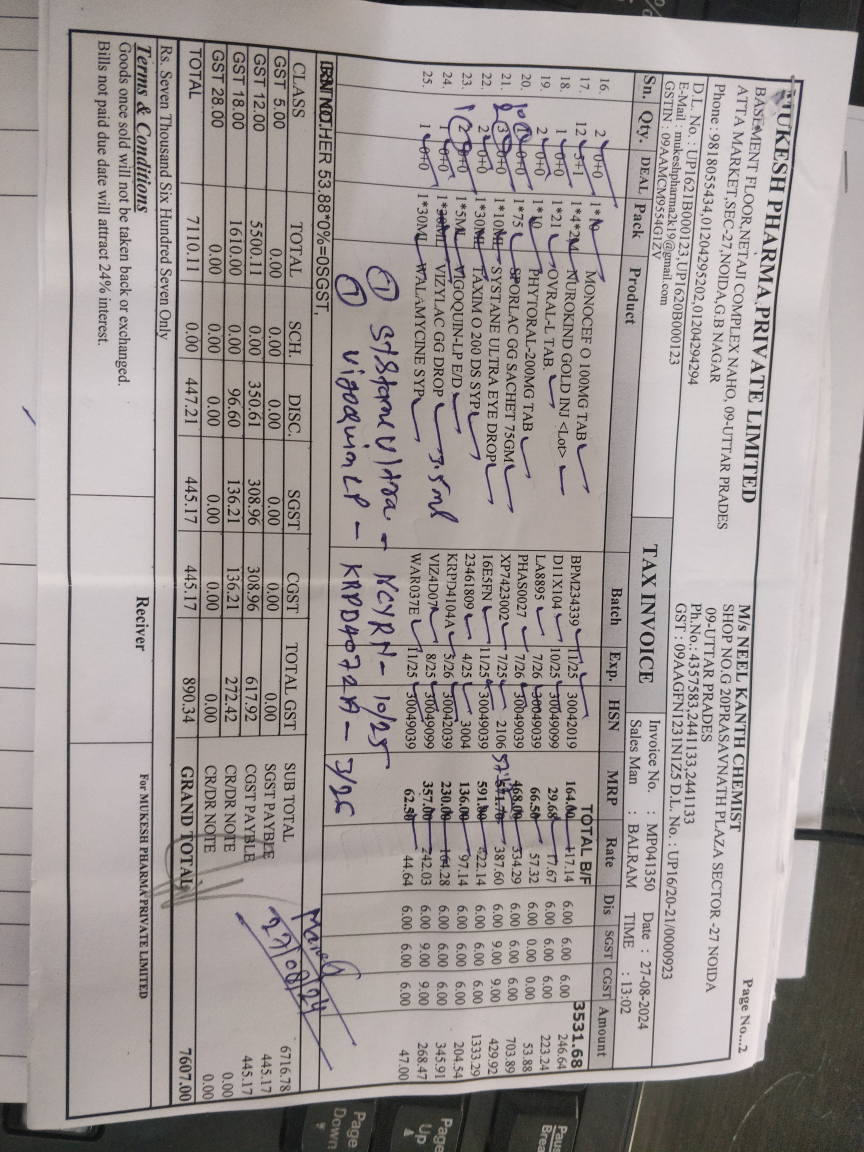 Page No....2
MUKESH PHARMA PRIVATE LIMITED
BASEMENT FLOOR,NETAJI COMPLEX NAHO, 09-UTTAR PRADES
ATTA MARKET,SEC-27,NOIDA,G.B NAGAR
Phone : 9818055434,01204295202,01204294294
D.L. No. : UP1621B000123,UP1620B000123
E-Mail : mukeshpharma2k19@gmail.com
GSTIN : 09AAMCM9554G1ZV
M/s NEEL KANTH CHEMIST
SHOP NO.G 20PRASAVNATH PLAZA SECTOR -27 NOIDA
09-UTTAR PRADES
Ph.No.: 4357583,2441133,2441133
GST : 09AAGFN1231N1Z5 D.L. No. : UP16/20-21/0000923
TAX INVOICE
Invoice No. : MP041350 Date : 27-08-2024
Sales Man : BALRAM TIME : 13:02
Sn. Qty. DEAL Pack Product Batch Exp. HSN MRP Rate Dis SGST CGST Amount
TOTAL B/F 3531.68
16. 2 0+0 1*10 MONOCEF O 100MG TAB BPM234339 11/25 30042019 164.00 117.14 6.00 6.00 6.00 246.64
17. 12 5+1 1*4*2M NUROKIND GOLD INJ <Lot> D11X104 10/25 30049099 29.68 17.67 6.00 6.00 6.00 223.24
18. 1 0+0 1*21 OVRAL-L TAB. LA8895 7/26 30049039 66.50 57.32 6.00 0.00 0.00 53.88
19. 2 0+0 1*10 PHYTORAL-200MG TAB PHAS0027 7/26 30049039 468.00 334.29 6.00 6.00 6.00 703.89
20. 0+0 1*75 SPORLAC GG SACHET 75GM XP7423002 7/25 2106 571.70 387.60 6.00 9.00 9.00 429.92
21. 3 0+0 1*10ML SYSTANE ULTRA EYE DROP 16E5FN 11/25 30049039 591.00 422.14 6.00 6.00 6.00 1333.29
22. 2 0+0 1*30ML TAXIM O 200 DS SYP 23461809 4/25 3004 136.00 97.14 6.00 6.00 6.00 204.54
23. 2 0+0 1*5ML VIGOQUIN-LP E/D KRPD4104A 5/26 30042039 230.00 164.28 6.00 6.00 6.00 345.91
24. 1 0+0 1*30ML VIZYLAC GG DROP VIZ4D07 8/25 30049099 357.00 242.03 6.00 9.00 9.00 268.47
25. 1 0+0 1*30ML WALAMYCINE SYP WAR037E 11/25 30049039 62.50 44.64 6.00 6.00 6.00 47.00
① Systane Ultra - NCYRN - 10/25
① Vigoquin LP - KRPD4072A - 3/26
CLASS TOTAL SCH. DISC. SGST CGST TOTAL GST
GST 5.00 0.00 0.00 0.00 0.00 0.00 0.00
GST 12.00 5500.11 0.00 350.61 308.96 308.96 617.92
GST 18.00 1610.00 0.00 96.60 136.21 136.21 272.42
GST 28.00 0.00 0.00 0.00 0.00 0.00 0.00
TOTAL 7110.11 0.00 447.21 445.17 445.17 890.34
SUB TOTAL 6716.78
SGST PAYBLE 445.17
CGST PAYBLE 445.17
CR/DR NOTE 0.00
CR/DR NOTE 0.00
GRAND TOTAL 7607.00
27/08/24
Rs. Seven Thousand Six Hundred Seven Only
Terms & Conditions
Goods once sold will not be taken back or exchanged.
Bills not paid due date will attract 24% interest.
Reciver
For MUKESH PHARMA PRIVATE LIMITED
Page
Down
Page
Up